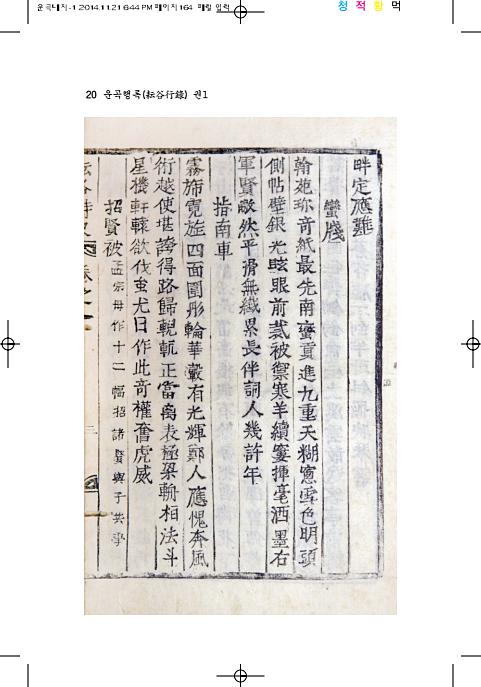 운곡내지-1 2014.11.21 6:44 PM 페이지164 매킨 일력
청 적 황 먹
20 운곡행록(耘谷行錄) 권1
畔定應難
蠻牋
翰苑珎奇紙最先南蠻貢進九重天糊窓雪色明頭
側帖壁銀光眩眼前裁被禦寒羊續宴揮毫洒墨右
軍賢皦然平滑無纎累長伴詞人幾許年
指南車
霧斾霓旌四面圍彤輪華轂有光輝鄭人應愧奔風
術越使堪誇得路歸輗軏正當离表極梁輈相法斗
星機軒轅欲伐蚩尤日作此奇權奮虎威
招賢被孟宗母作十二幅招諸賢與子共